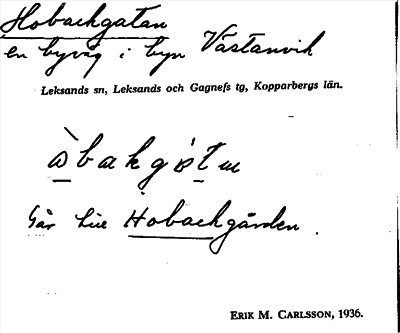 Hobackgatan
en byväg i byn Västanvik
Leksands sn, Leksands och Gagnefs tg, Kopparbergs län.
Går till Hobackgården.
ERIK M. CARLSSON, 1936.